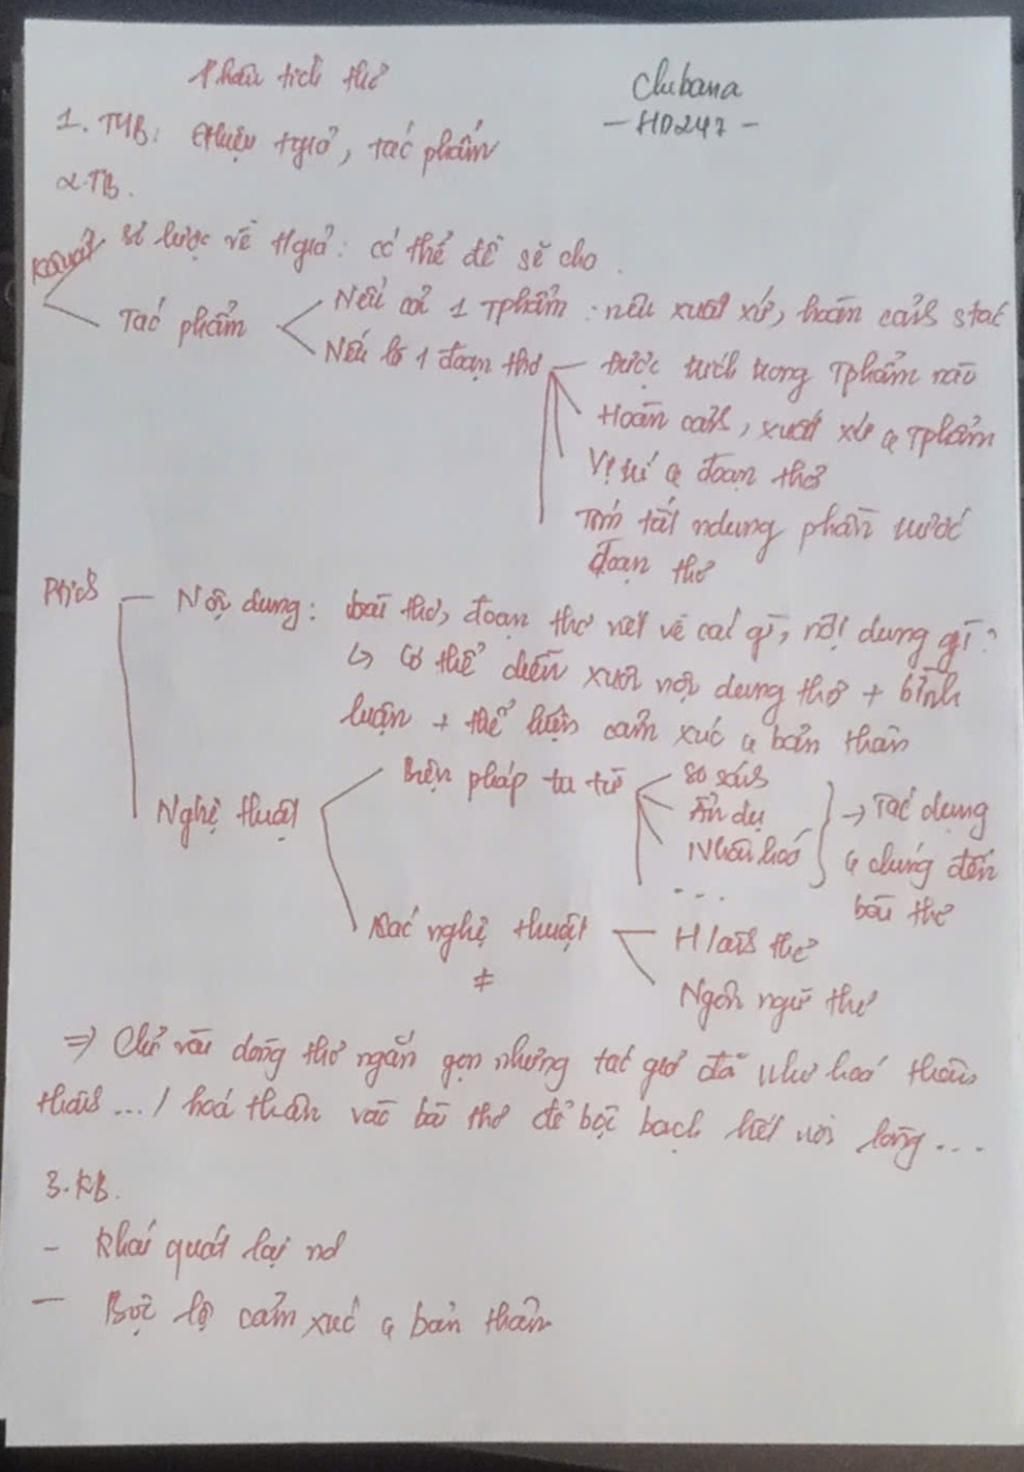 Phân tích thơ
Clubana
- HD247 -
1. MB: Gthiệu tgiả, tác phẩm
2. TB.
Kquát
sơ lược về tgiả: có thể đề sẽ cho.
Tác phẩm
Nếu cả 1 Tphẩm: nêu xuất xứ, hoàn cảnh stác
Nếu là 1 đoạn thơ
được trích trong Tphẩm nào
Hoàn cảnh, xuất xứ q Tphẩm
Vị trí q đoạn thơ
Tóm tắt ndung phần trước
đoạn thơ
Ptích
Nội dung: bài thơ, đoạn thơ viết về cái gì, nội dung gì?
↳ Có thể diễn xuôi nội dung thơ + bình
luận + thể hiện cảm xúc q bản thân
Nghệ thuật
Biện pháp tu từ
so sánh
Ẩn dụ
Nhân hoá
...
→ Tác dụng
q chúng đến
bài thơ
Các nghệ thuật
≠
H/ảnh thơ
Ngôn ngữ thơ
⇒ Chỉ vài dòng thơ ngắn gọn nhưng tác giả đã như hoá thân
thành ... / hoá thân vào bài thơ để bộc bạch hết nỗi lòng ...
3. KB.
- Khái quát lại nd
- Bộc lộ cảm xúc q bản thân